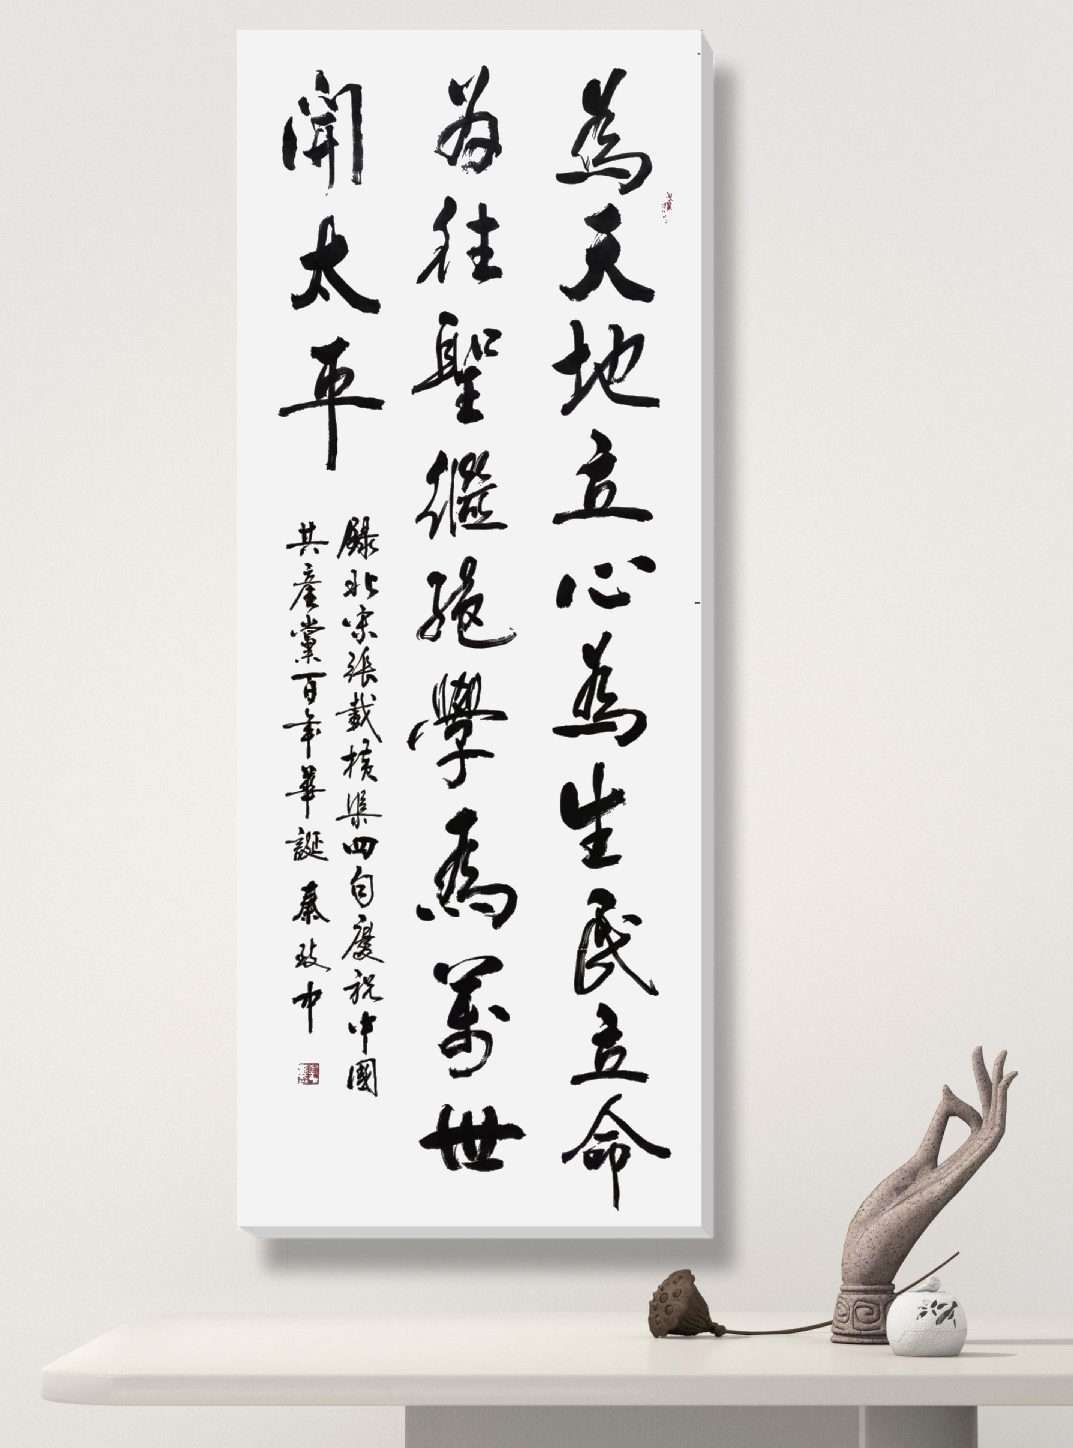 為天地立心為生民立命
為往聖繼絕學為萬世
開太平
錄北宋張載橫渠四句慶祝中國
共產黨百年華誕 秦致中